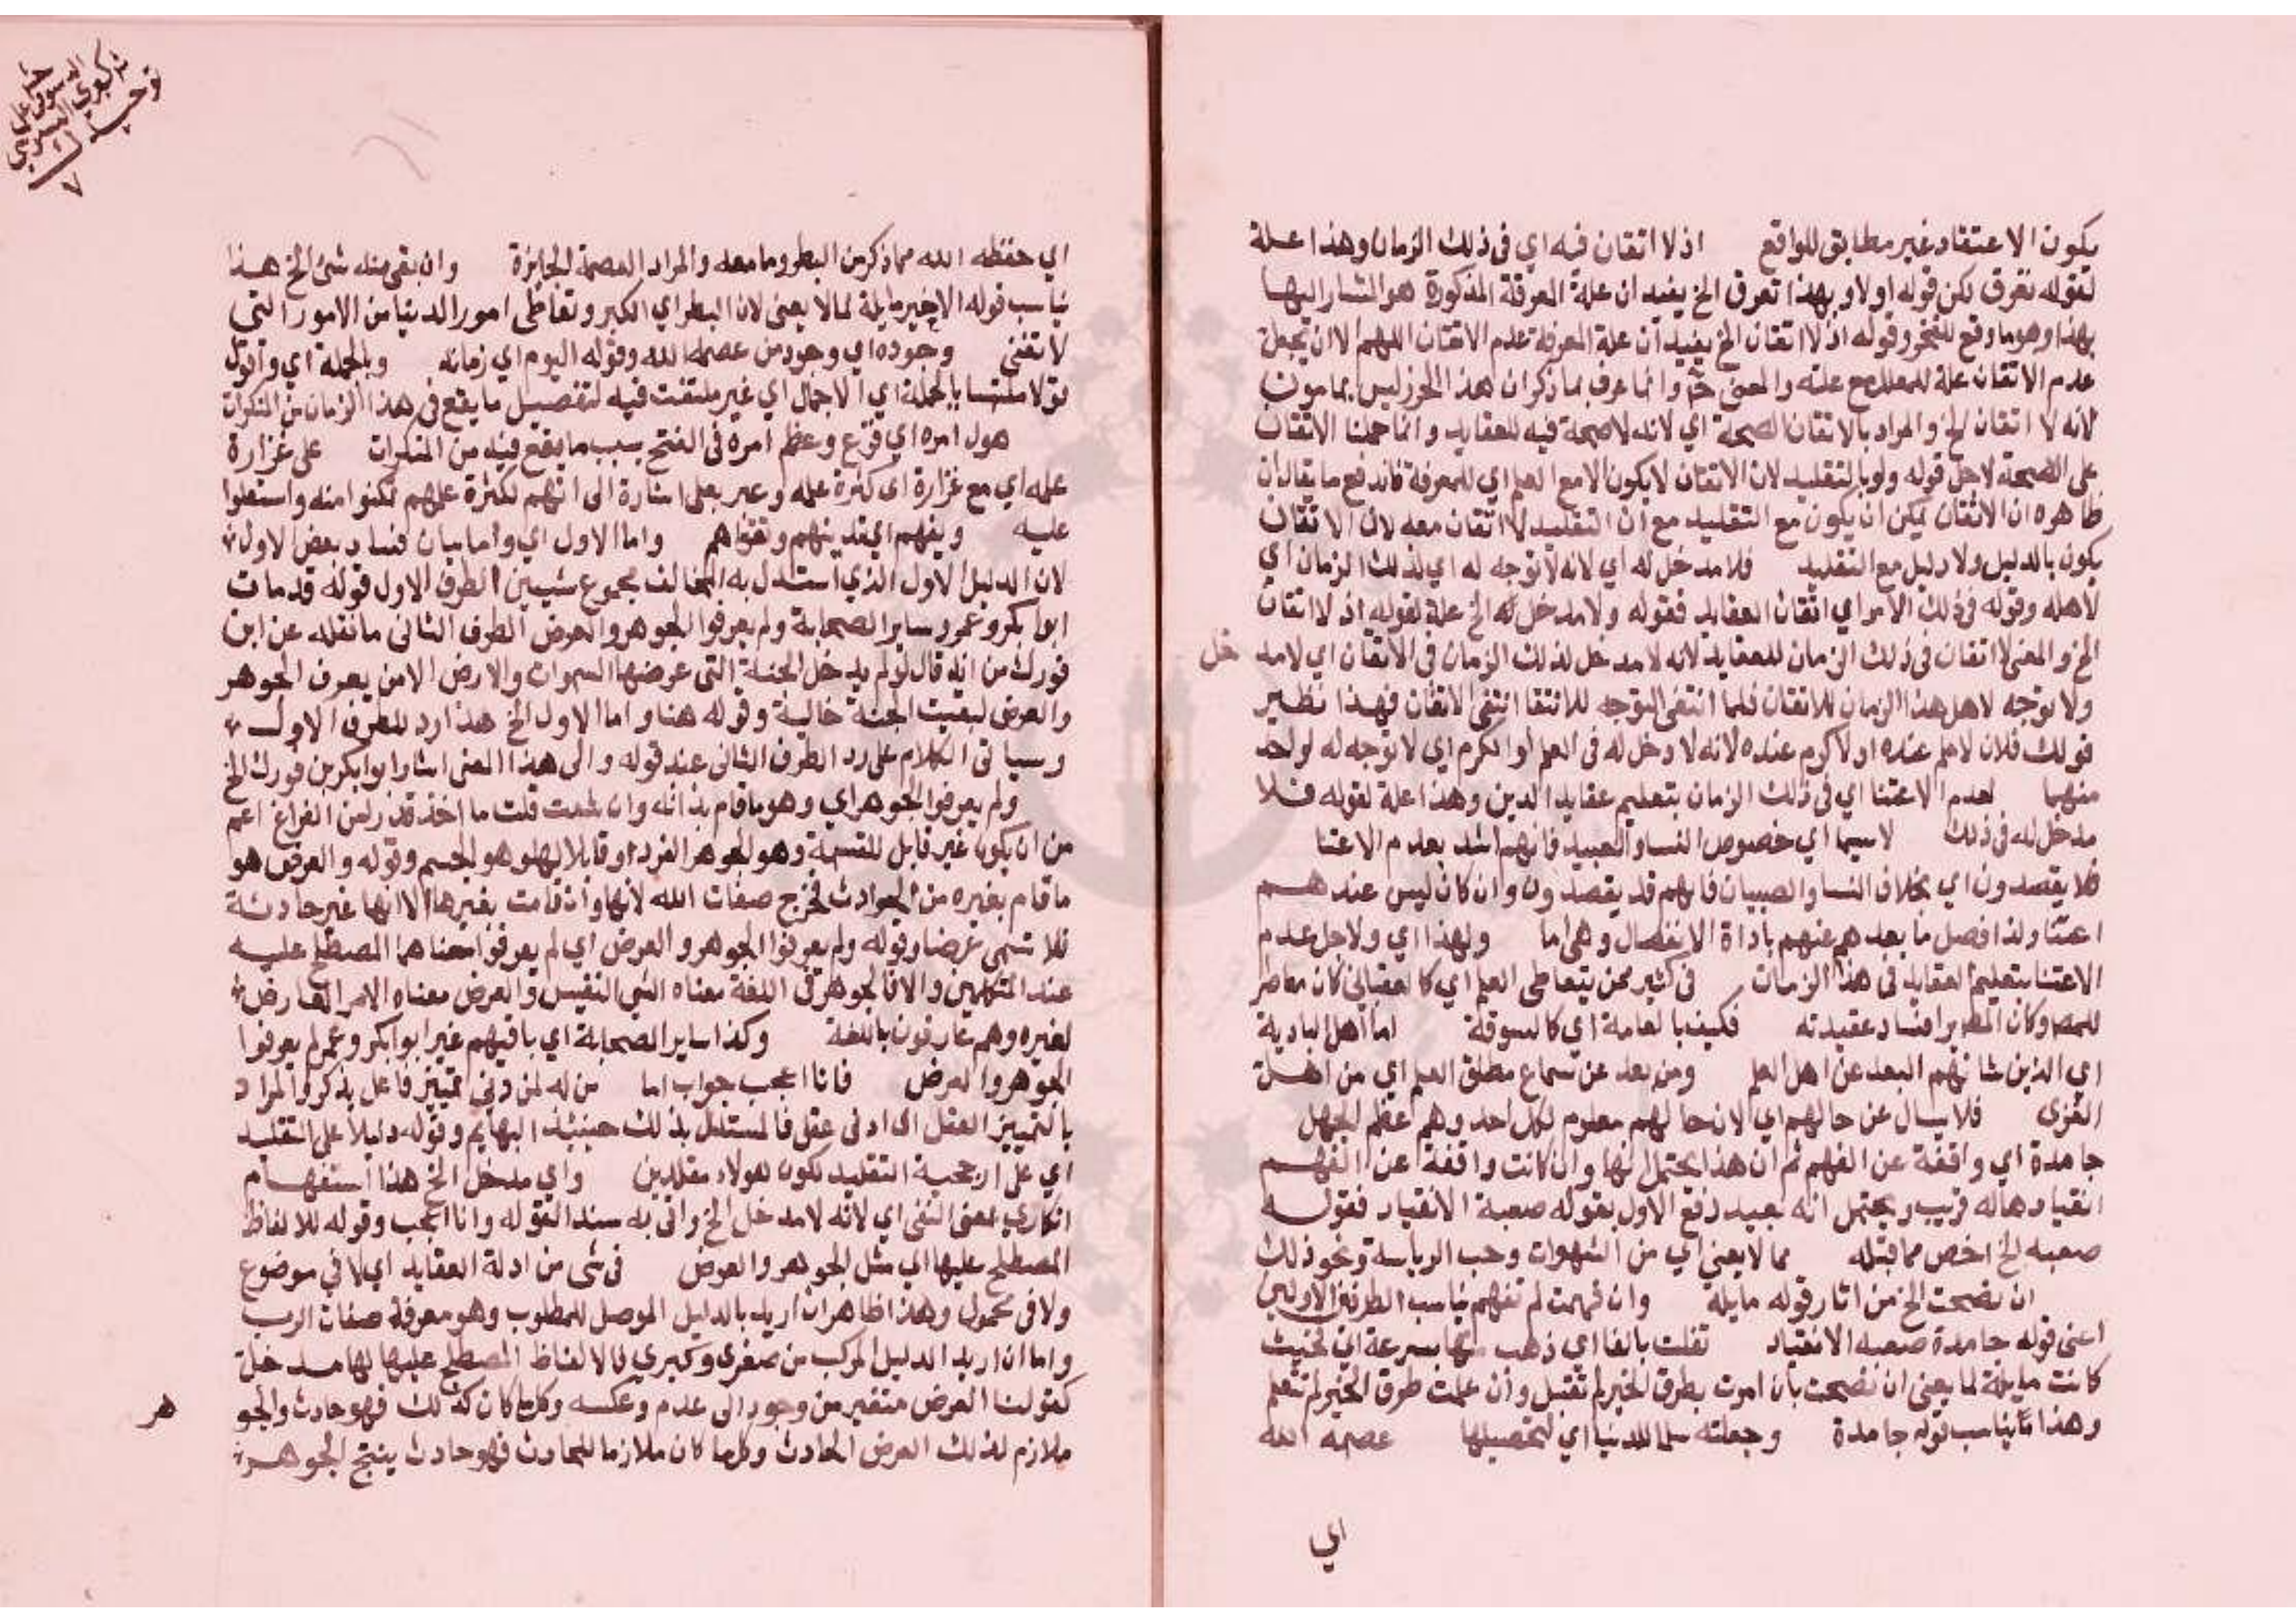 يكون الاعتقاد غير مطابق للواقع اذ لا اتقان فيه اي في ذلك الزمان وهذا علة
لقوله تعرق لكن قوله اولا وبهذا تعرق الخ يفيد ان علة المعرفة المذكورة هو المشار اليها
بهذا وهو ما وقع للفخر وقوله اذ لا اتقان الخ يفيد ان علة المعرفة عدم الاتقان اللهم الا ان تجعل
عدم الاتقان علة للمعلل مع علته والمعنى ح وانما عرف بما ذكر ان هذا الحرز ليس بمامون
لانه لا اتقان الخ والمراد بالاتقان الصحة اي لانه لا صحة فيه للعقايد وانما حملنا الاتقان
على الصحة لاجل قوله ولو بالتقليد لان الاتقان لا يكون الا مع العلم اي للمعرفة فاندفع ما يقال ان
ظاهره ان الاتقان يمكن ان يكون مع التقليد مع ان التقليد لا اتقان معه لان الاتقان
يكون بالدليل ولا دليل مع التقليد فلا مدخل له اي لانه لا توجه له اي لذلك الزمان اي
لاهله وقوله في ذلك الامر اي اتقان العقايد فقوله ولا مدخل له الخ علة لقوله اذ لا اتقان
الخ والمعنى لا اتقان في ذلك الزمان للعقايد لانه لا مدخل لذلك الزمان في الاتقان اي لا مد خل
ولا توجه لاهل هذا الزمان للاتقان فلما انتفى التوجه للاتقا انتفى الاتقان فهذا نظير
قولك فلان لا علم عنده او لا كرم عنده لانه لا دخل له في العلم او الكرم اي لا توجه له لواحد
منهما لعدم الاعتنا اي في ذلك الزمان بتعليم عقايد الدين وهذا علة لقوله فلا
مدخل له في ذلك لاسيما اي خصوص النسا والعبيد فانهم اشد بعدم الاعتنا
فلا يقصدون اي بخلاف النسا والصبيان فانهم قد يقصدون وان كان ليس عندهم
اعتنا ولذا فصل ما بعدهم عنهم باداة الانفصال وهي اما ولهذا اي ولاجل عدم
الاعتنا بتعليم العقايد في هذا الزمان في كثير ممن يتعاطى العلم اي كالعقباني كان معاصر
للمصر وكان المظهر افساد عقيدته فكيف بالعامة اي كالسوقة اما اهل البادية
اي الذين شانهم البعد عن اهل العلم ومن بعد عن سماع مطلق العلم اي من اهل
القرى فلا يسال عن حالهم اي لان حالهم معلوم لكل احد وهم اعظم الجهل
جامدة اي واقفة عن الفهم ثم ان هذا يحتمل انها وان كانت واقفة عن الفهم
انقيادها له قريب ويحتمل انه بعيد دفع الاول بقوله صعبة الانقياد فقوله
صعبه الخ اخص مما قبله مما لا يعني اي من الشهوات وحب الرياسة ونحو ذلك
ان نصحت الخ من اثار قوله مايلة وان فهمت لم تفهم يناسب الطرفين الاولين
اعنى قوله جامدة صعبه الانقياد تفلت بالفا اي ذهب منها بسرعة اي لحيث
كانت مايلة لما يعني ان نصحت بان امرت بطرق الخير لم تقبل وان علمت طرق الخير لم تتعلم
وهذا يناسب قوله جامدة وجعلته سلما للدنيا اي لتحصيلها عصمه الله
اي
اي حفظه الله مما ذكر من البطر وما معه والمراد العصمة الجايزة وان بقي منه شئ الخ هذا
يناسب قوله الاخير مايلة لما لا يعني لان البطر اي الكبر وتعاطى امور الدنيا من الامور التي
لا تعني وجوده اي وجود من عصمه الله وقوله اليوم اي زمانه وبالجملة اي واقول
قولا ملتبسا بالجملة اي الاجمال اي غير ملتفت فيه لتفصيل ما يقع في هذا الزمان من المنكرات
هول امره اي فزع وعظم امره في الفتح بسبب ما يقع فيه من المنكرات على غزارة
علمه اي مع غزارة اي كثرة علمه وعبر بعلى اشارة الى انهم لكثرة علمهم تمكنوا منه واستعلوا
عليه ودينهم اي تدينهم وتقواهم واما الاول اي واما بيان فساد بعض الاول
لان الدليل الاول الذي استدل به المخالف مجموع شيين الطرف الاول قوله قد مات
ابو بكر وعمر وساير الصحابة ولم يعرفوا الجوهر والعرض الطرف الثاني ما نقله عن ابن
فورك من انه قال لو لم يدخل الجنة التي عرضها السموات والارض الا من يعرف الجوهر
والعرض لبقيت الجنة خالية وقوله هنا واما الاول الخ هذا رد للطرف الاول
وسياتي الكلام على رد الطرف الثاني عند قوله والى هذا المعنى اشار ابو بكر بن فورك الخ
ولم يعرفوا الجوهر اي وهو ما قام بذاته وان شئت قلت ما اخذ قدرا من الفراغ اعم
من ان يكون غير قابل للقسمة وهو الجوهر الفرد او قابلا لها وهو الجسم وقوله والعرض هو
ما قام بغيره من الحوادث فخرج صفات الله لانها وان قامت بغيرها الا انها غير حادثة
فلا تسمى عرضا وقوله ولم يعرفوا الجوهر والعرض اي لم يعرفوا معناهما المصطلح عليه
عند المتكلمين والا فالجوهر في اللغة معناه الشي النفيس والعرض معناه الامر العارض
لغيره وهم عارفون باللغة وكذا ساير الصحابة اي باقيهم غير ابو ابكر وعمر لم يعرفوا
الجوهر والعرض فانا اعجب جواب اما من له ادنى تمييز فاعل يذكر والمراد
بالتمييز العقل اي ادنى عقل فالمستدل بذلك حينئذ البهايم وقوله دليلا على التقليد
اي على ارجحية التقليد لكون هولاء مقلدين واي مدخل الخ هذا استفهام
انكاري بمعنى النفي اي لانه لا مدخل الخ واتى به سندا لقوله وانا اعجب وقوله للالفاظ
المصطلح عليها اي مثل الجوهر والعرض في شى من ادلة العقايد اي لا في موضوع
ولا في محمول وهذا ظاهر ان اريد بالدليل الموصل للمطلوب وهو معرفة صفات الرب
واما ان اريد الدليل المركب من صغرى وكبرى فالالفاظ المصطلح عليها لها مدخل
كقولنا العرض متغير من وجود الى عدم وعكسه وكلما كان كذلك فهو حادث والجو هر
ملازم لذلك العرض الحادث وكلما كان ملازما للحادث فهو حادث ينتج الجوهر